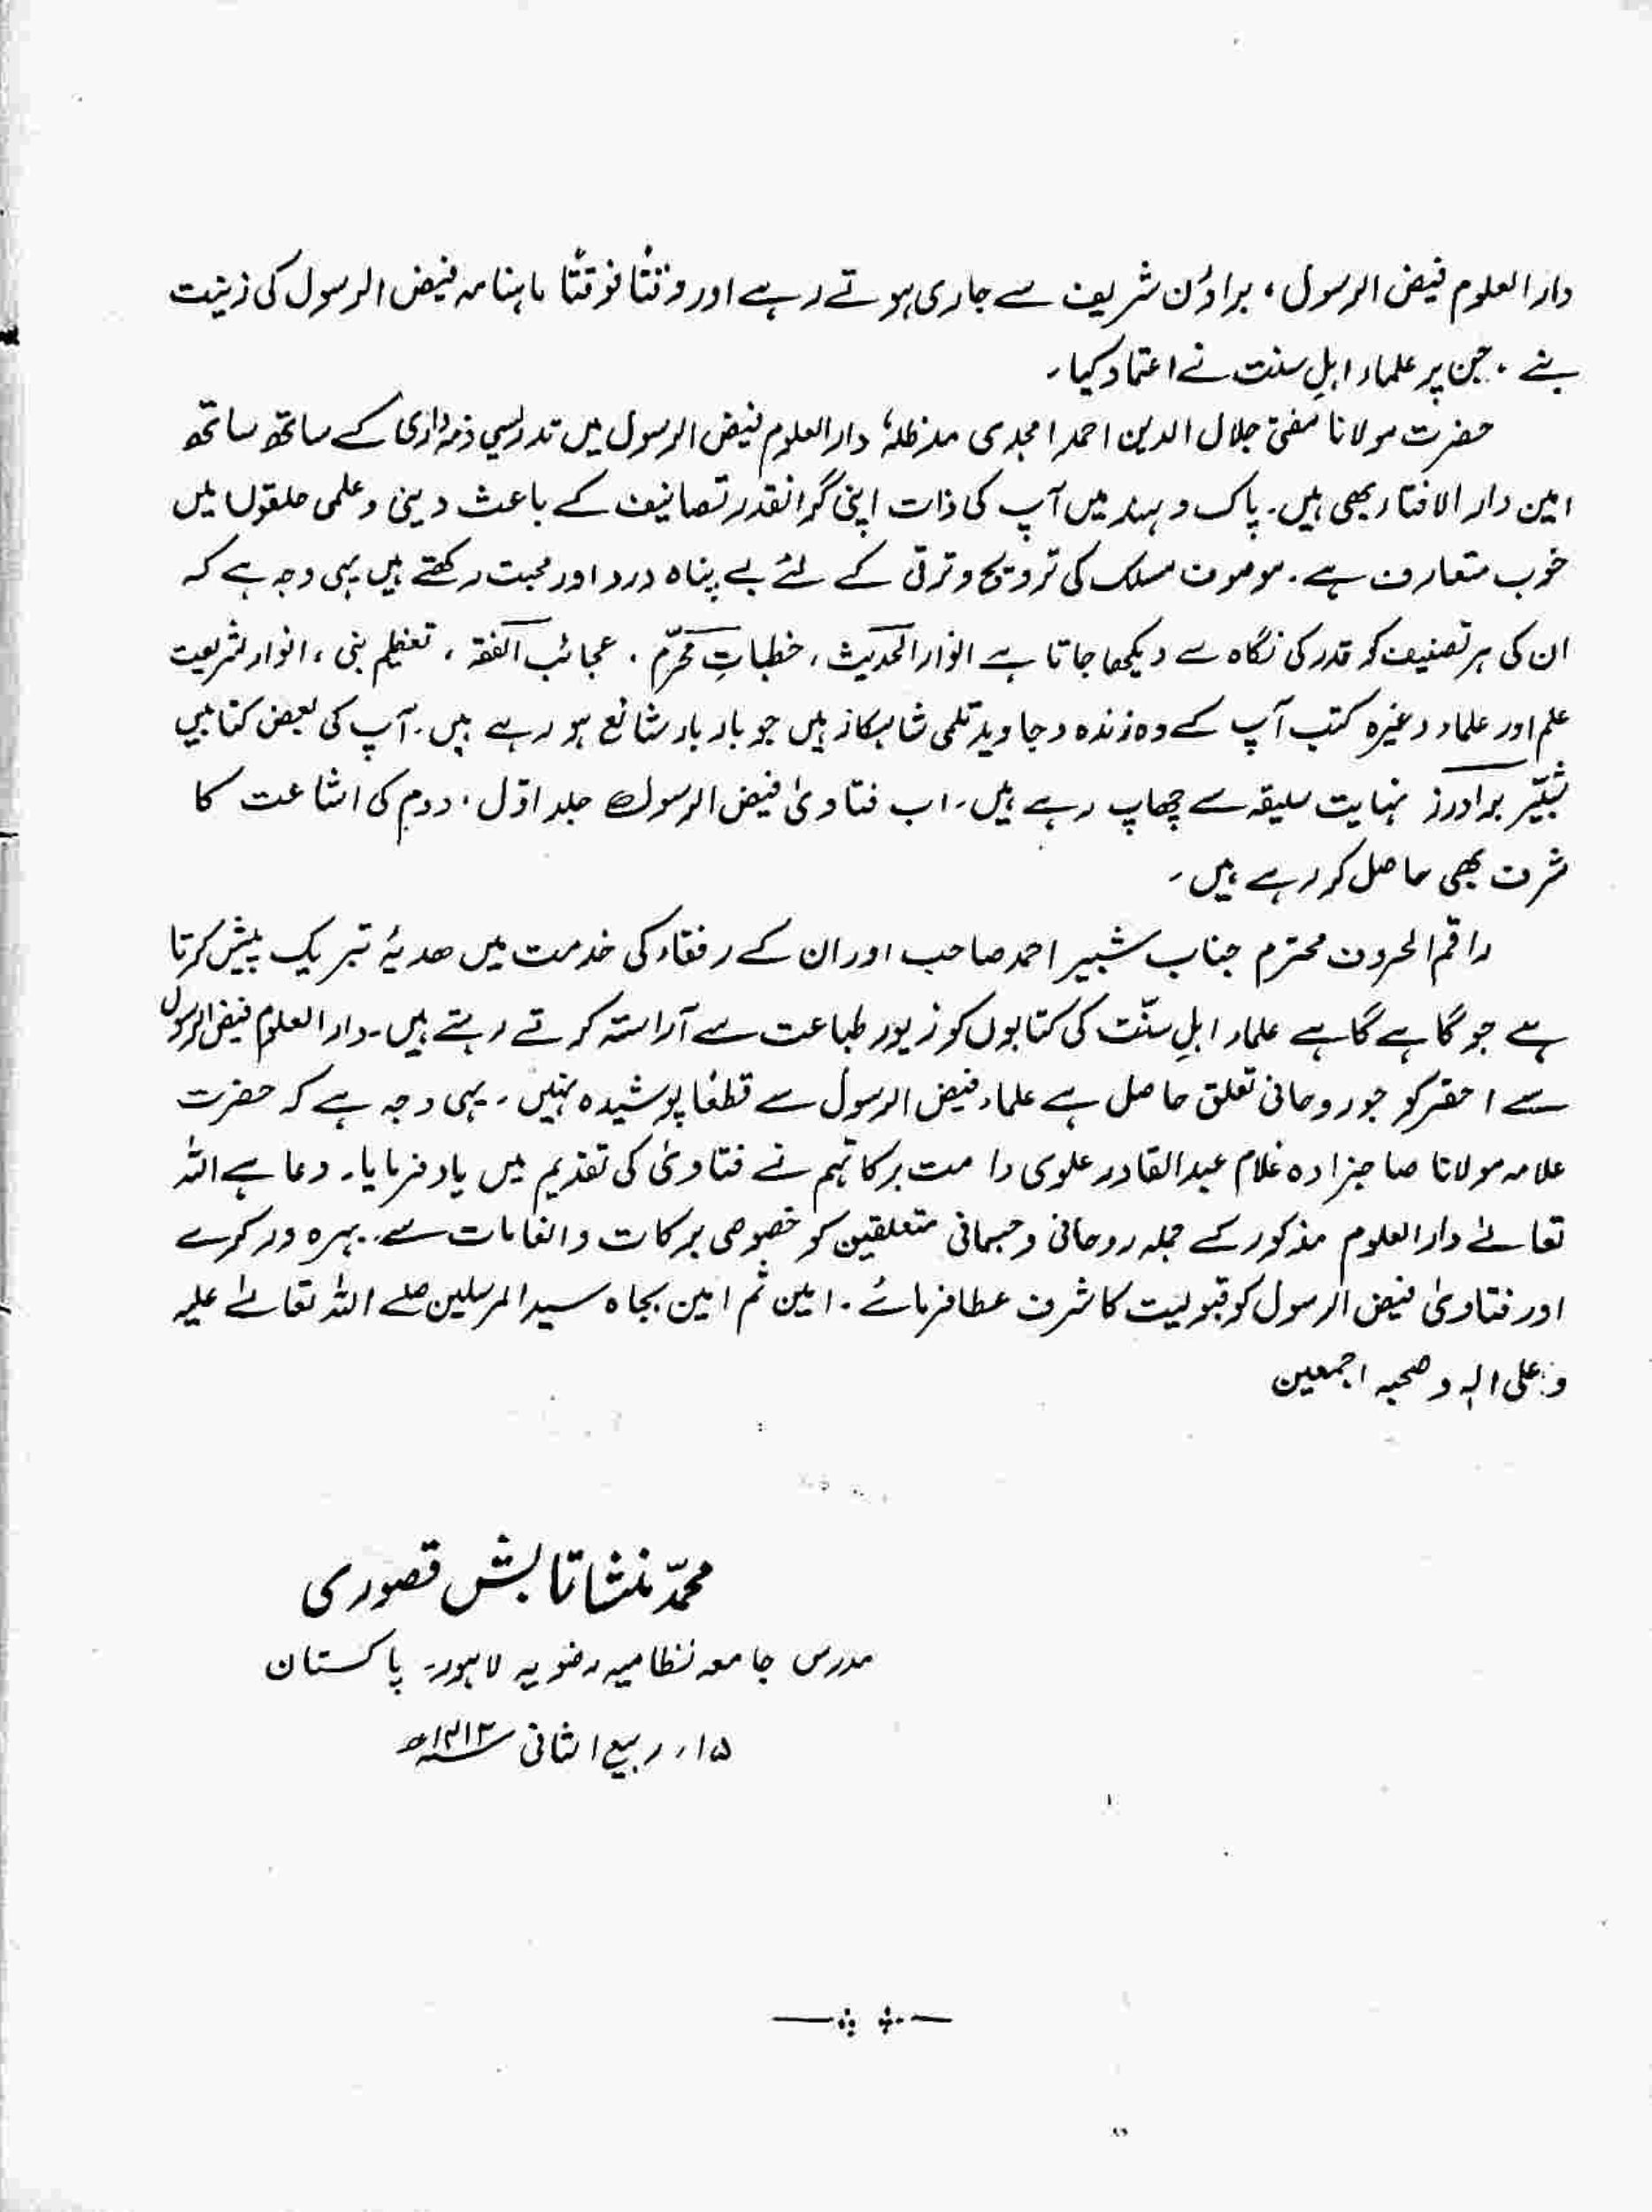 دارالعلوم فیض الرسول، براؤن شریف سے جاری ہوتے رہے اور وقتًا فوقتًا ماہنامہ فیض الرسول کی زینت
بنے۔ جن پر علماء اہلِ سنت نے اعتماد کیا۔
حضرت مولانا مفتی جلال الدین احمد امجدی مدظلہٗ دارالعلوم فیض الرسول میں تدریسی ذمہ داری کے ساتھ ساتھ
امین دار الافتاء بھی ہیں۔ پاک و ہند میں آپ کی ذات اپنی گرانقدر تصانیف کے باعث دینی و علمی حلقوں میں
خوب متعارف ہے۔ موصوف مسلک کی ترویج و ترقی کے لئے بے پناہ درد اور محبت رکھتے ہیں یہی وجہ ہے کہ
ان کی ہر تصنیف کو قدر کی نگاہ سے دیکھا جاتا ہے انوار الحدیث، خطباتِ محرّم، عجائب الفقہ، تعظیم نبی، انوار شریعت
علم اور علماء وغیرہ کتب آپ کے وہ زندہ و جاوید قلمی شاہکار ہیں جو بار بار شائع ہو رہے ہیں۔ آپ کی بعض کتابیں
شبّیر برادرز نہایت سلیقہ سے چھاپ رہے ہیں۔ اب فتاویٰ فیض الرسول جلد اوّل، دوم کی اشاعت کا
شرف بھی حاصل کر رہے ہیں۔
راقم الحروف محترم جناب شبیر احمد صاحب اور ان کے رفقاء کی خدمت میں ھدیۂ تبریک پیش کرتا
ہے جو گاہے گاہے علماء اہلِ سنّت کی کتابوں کو زیور طباعت سے آراستہ کرتے رہتے ہیں۔ دارالعلوم فیض الرسول
سے احقر کو جو روحانی تعلق حاصل ہے علماء فیض الرسول سے قطعًا پوشیدہ نہیں۔ یہی وجہ ہے کہ حضرت
علامہ مولانا صاحبزادہ غلام عبدالقادر علوی دامت برکاتہم نے فتاویٰ کی تقدیم میں یاد فرمایا۔ دعا ہے اللہ
تعالےٰ دارالعلوم مذکور کے جملہ روحانی و جسمانی متعلقین کو خصوصی برکات و انعامات سے بہرہ ور کرے
اور فتاویٰ فیض الرسول کو قبولیت کا شرف عطا فرمائے۔ امین ثم امین بجاہ سید المرسلین صلے اللہ تعالےٰ علیہ
و علی الہٖ و صحبہ اجمعین
محمّد منشا تابش قصوری
مدرس جامعہ نظامیہ رضویہ لاہور۔ پاکستان
۱۵؍ ربیع الثانی ۱۴۱۳ھ